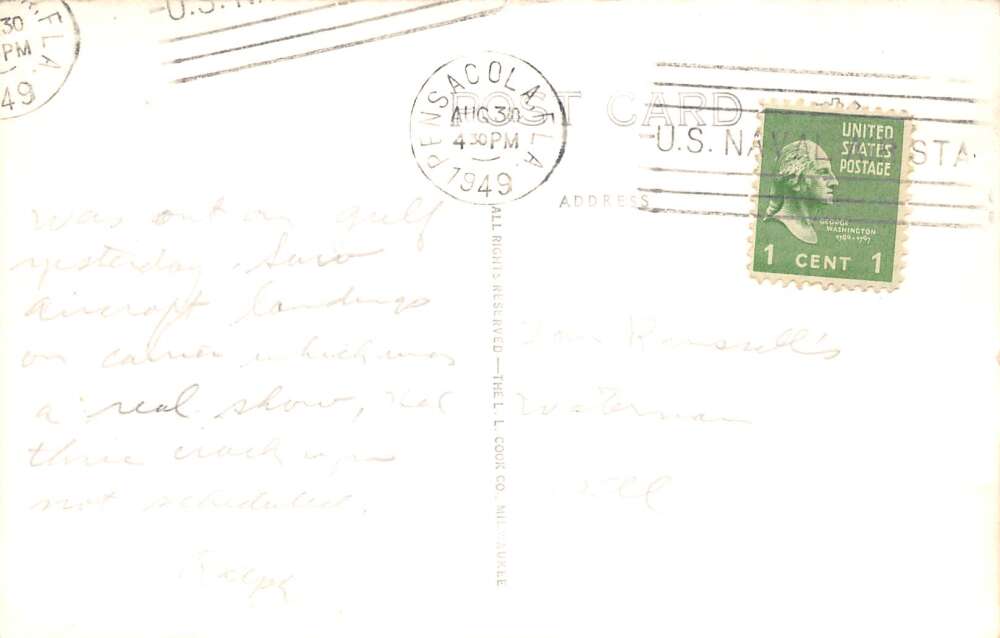 30
PM
FLA.
49
U.S. NA
PENSACOLA, FLA.
AUG 30
4 30 PM
1949
POST CARD
U.S. NAVAL STA
ADDRESS
UNITED
STATES
POSTAGE
GEORGE
WASHINGTON
1789-1797
1 CENT 1
was out on gulf
yesterday. Saw
aircraft landings
on carrier which was
a real show,
three crack ups
not scheduled.
Ralph
ALL RIGHTS RESERVED—THE L. L. COOK CO. MILWAUKEE
Russell's
Waterman
Ill